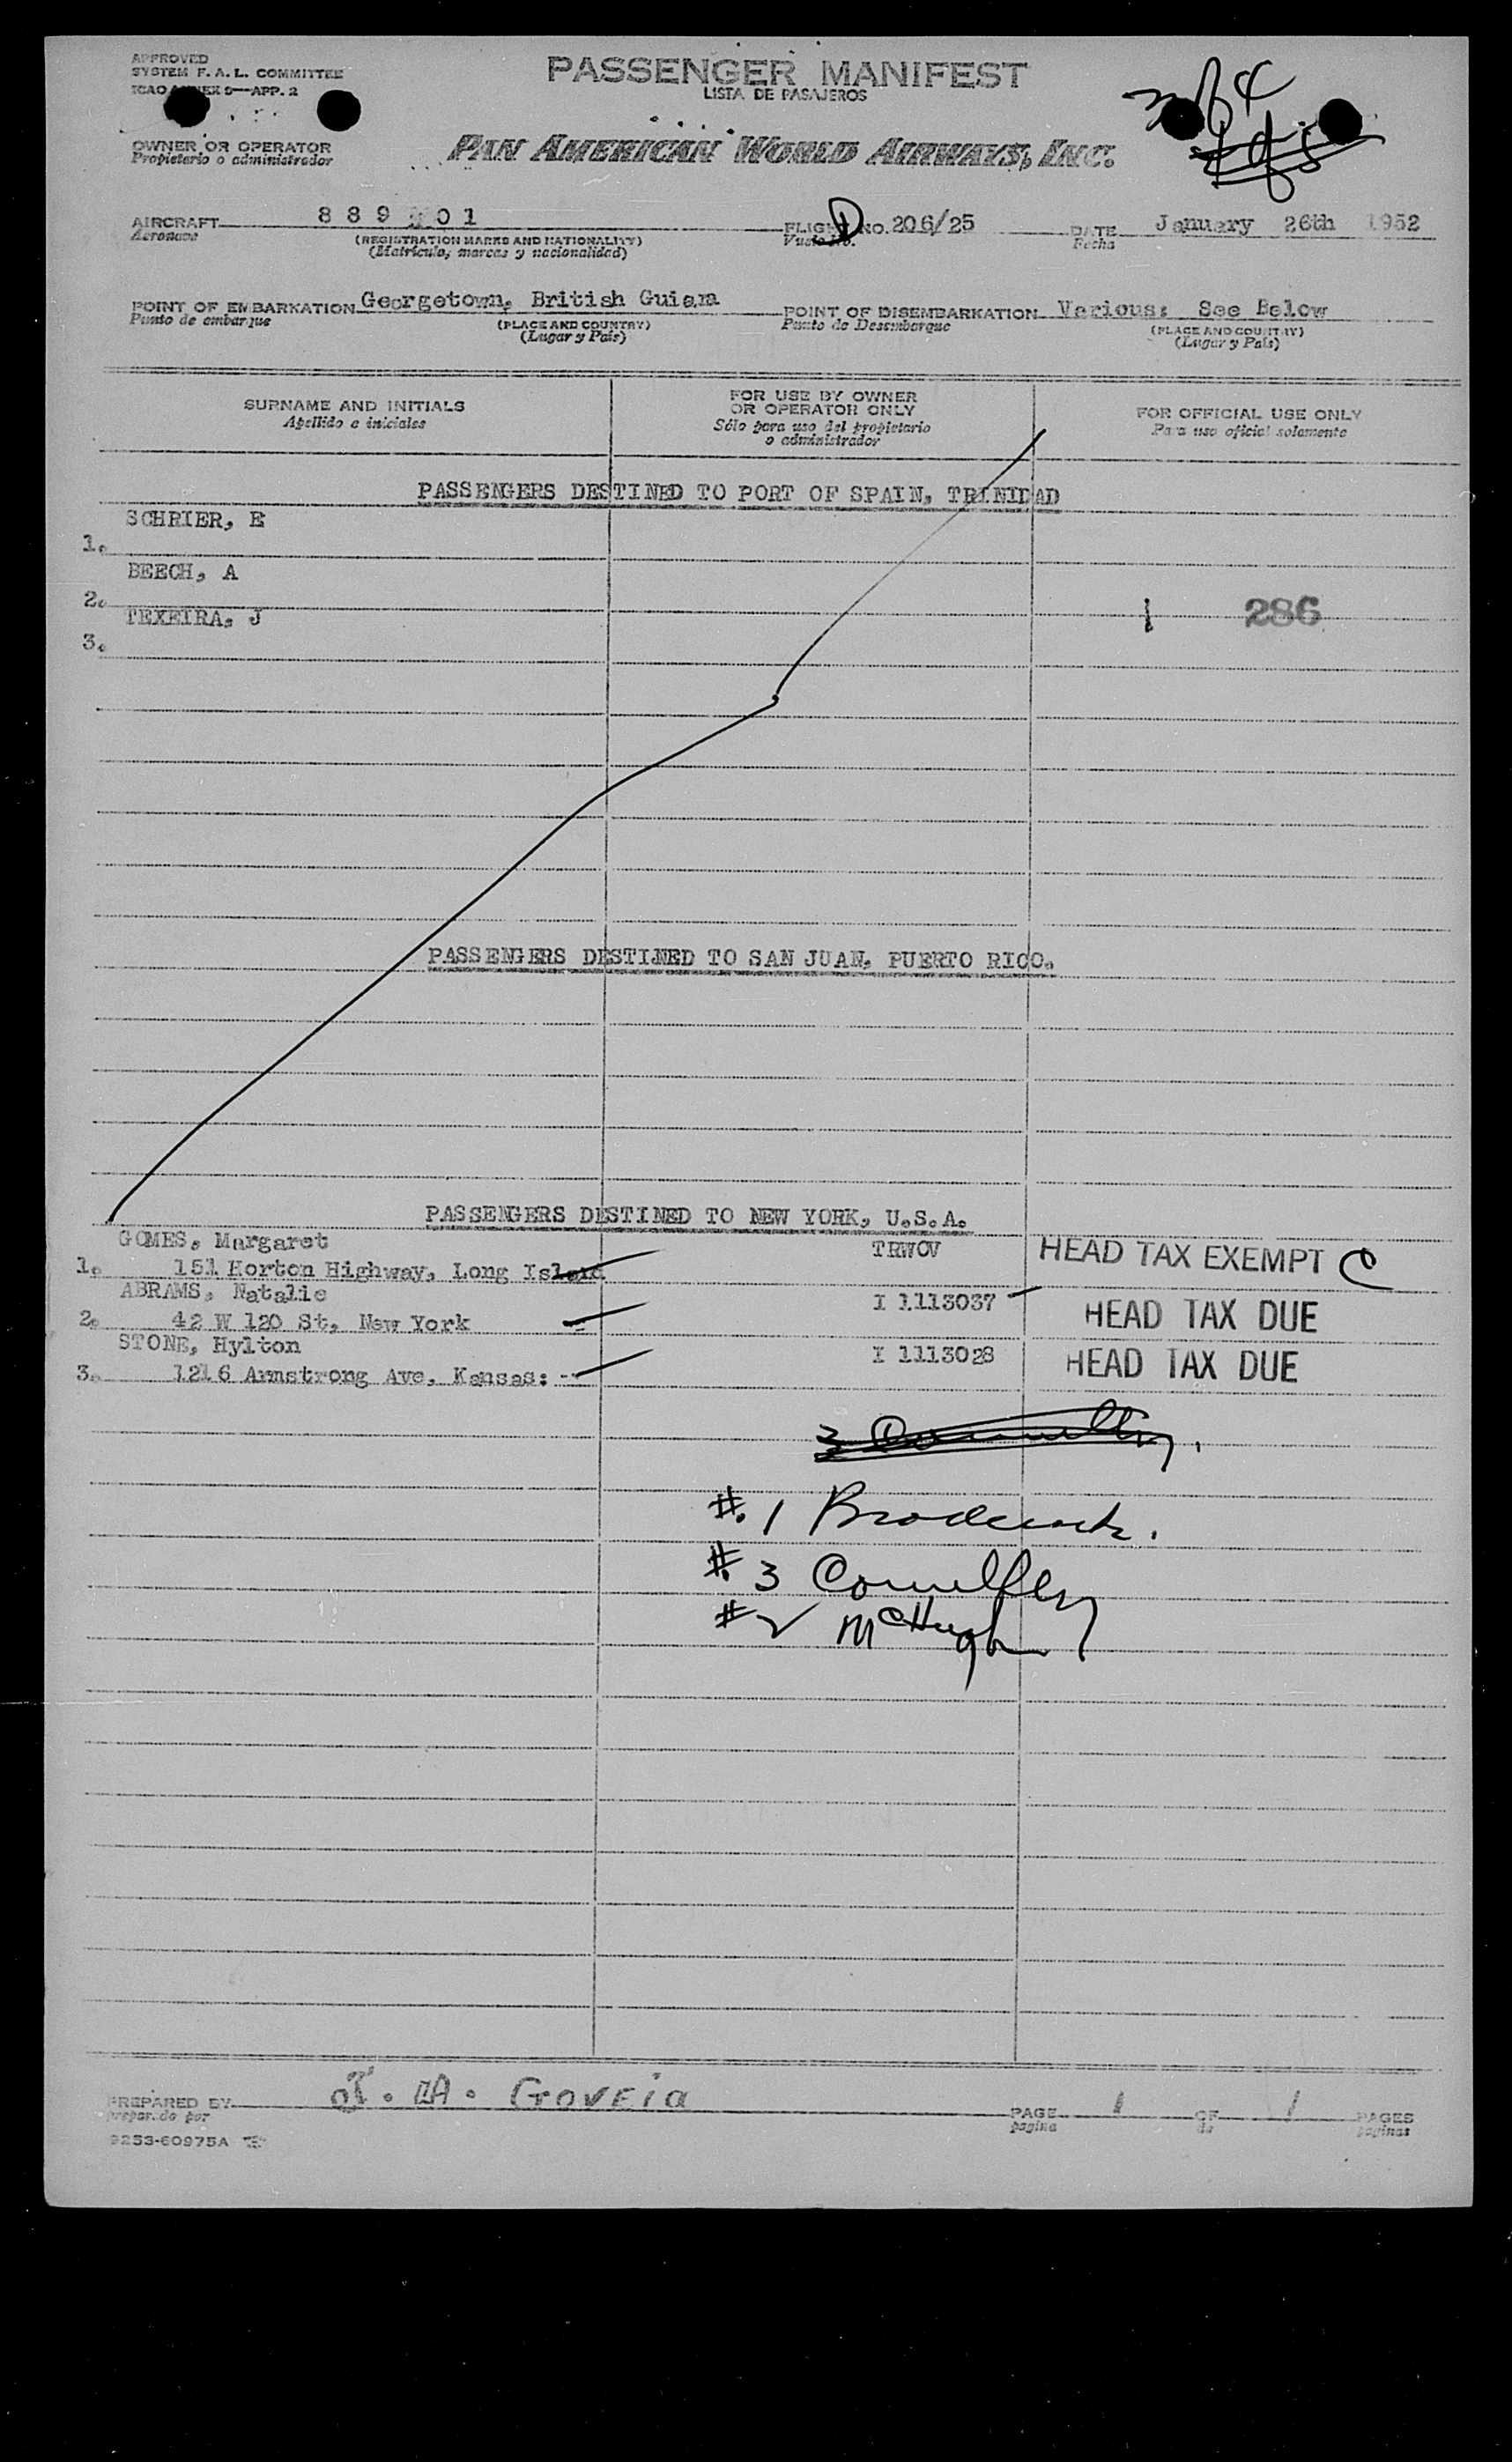 APPROVED
SYSTEM F. A. L. COMMITTEE
ICAO ANNEX 9—APP. 2
PASSENGER MANIFEST
LISTA DE PASAJEROS
OWNER OR OPERATOR
Propietario o administrador
PAN AMERICAN WORLD AIRWAYS, INC.
AIRCRAFT 889 01 FLIGHT NO. 206/25 DATE January 26th 1952
Aeronave (REGISTRATION MARKS AND NATIONALITY) Vuelo No. Fecha
(Matrícula, marcas y nacionalidad)
POINT OF EMBARKATION Georgetown, British Guiana POINT OF DISEMBARKATION Various: See Below
Punto de embarque (PLACE AND COUNTRY) Punto de Desembarque (PLACE AND COUNTRY)
(Lugar y País) (Lugar y País)
SURNAME AND INITIALS
Apellido e iniciales
FOR USE BY OWNER
OR OPERATOR ONLY
Sólo para uso del propietario
o administrador
FOR OFFICIAL USE ONLY
Para uso oficial solamente
PASSENGERS DESTINED TO PORT OF SPAIN, TRINIDAD
SCHRIER, E
1.
BEECH, A
2.
TEXEIRA, J 286
3.
PASSENGERS DESTINED TO SAN JUAN, PUERTO RICO.
PASSENGERS DESTINED TO NEW YORK, U.S.A.
GOMES, Margaret TRWOV HEAD TAX EXEMPT C
1. 151 Horton Highway, Long Island
ABRAMS, Natalie I 1113037 HEAD TAX DUE
2. 42 W 120 St, New York
STONE, Hylton I 1113028 HEAD TAX DUE
3. 1216 Armstrong Ave, Kansas: -
#1
#3 Connelly
#2 McHugh
PREPARED BY J. A. Goveia PAGE 1 OF 1 PAGES
preparado por página de páginas
9253-60975A